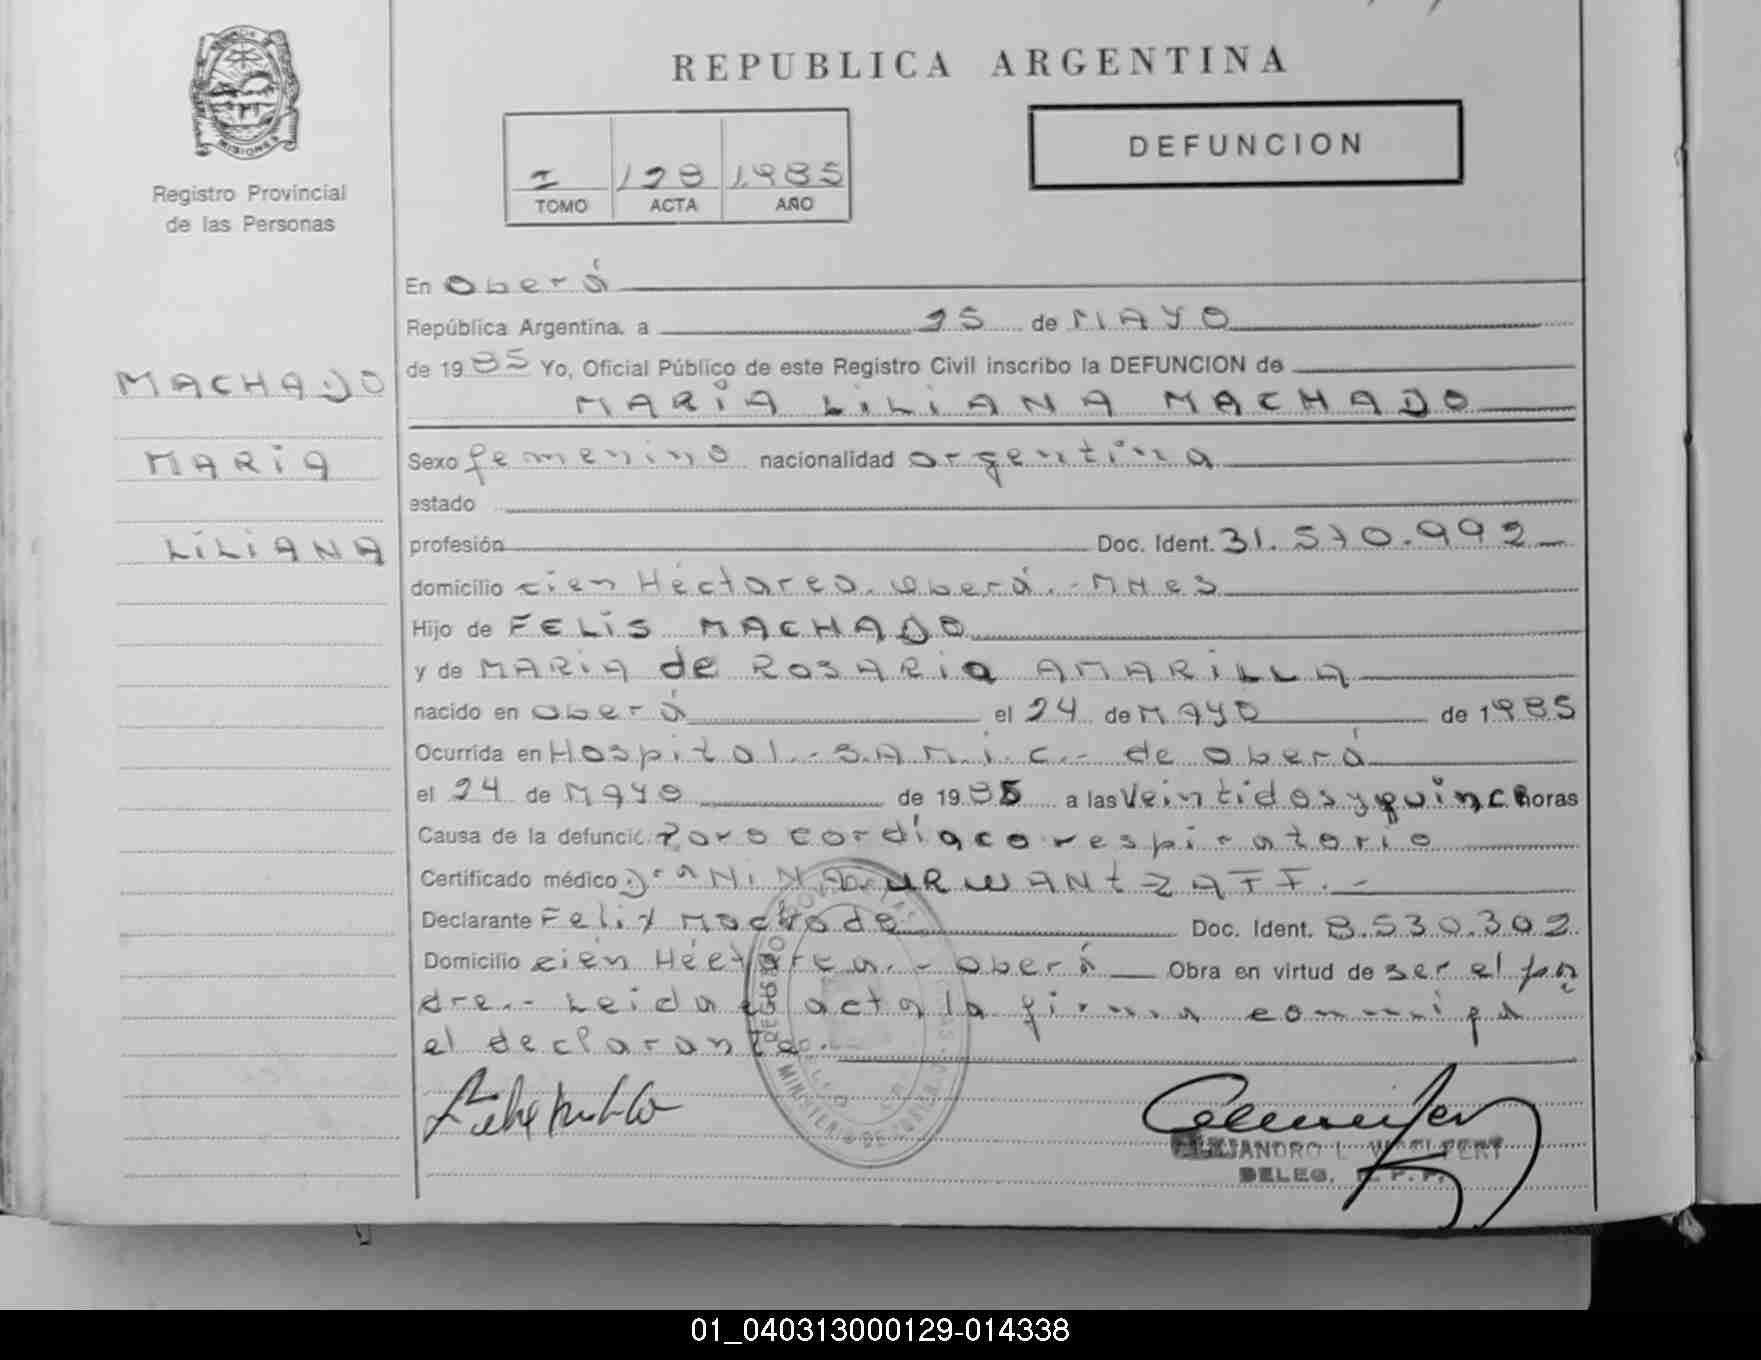 MISIONES
Registro Provincial
de las Personas
REPUBLICA ARGENTINA
I 128 1.985
TOMO ACTA AÑO
DEFUNCION
En Oberá
República Argentina, a 25 de MAYO
de 1985 Yo, Oficial Público de este Registro Civil inscribo la DEFUNCION de
MACHADO
MARIA LILIANA MACHADO
MARIA
Sexo femenino nacionalidad argentina
estado
LILIANA
profesión Doc. Ident. 31.570.992
domicilio cien Héctarea. Oberá.-MNes
Hijo de FELIS MACHADO
y de MARIA de ROSARIA AMARILLA
nacido en Oberá el 24 de MAYO de 1985
Ocurrida en Hospital.-S.A.M.i.C.- de Oberá
el 24 de MAYO de 1985 a las Veintidos y quince horas
Causa de la defunción Paro cardíaco respiratorio
Certificado médico Dra NINA URWANTZAFF.-
Declarante Felix Machado Doc. Ident. 8.530.302
Domicilio cien Héctarea.- Oberá Obra en virtud de ser el pa
dre.- Leida el acta la firma conmigo
el declarante.
MINISTERIO DE
ALEJANDRO L. WOELFERT
DELEG. R. P. P.
01_040313000129-014338